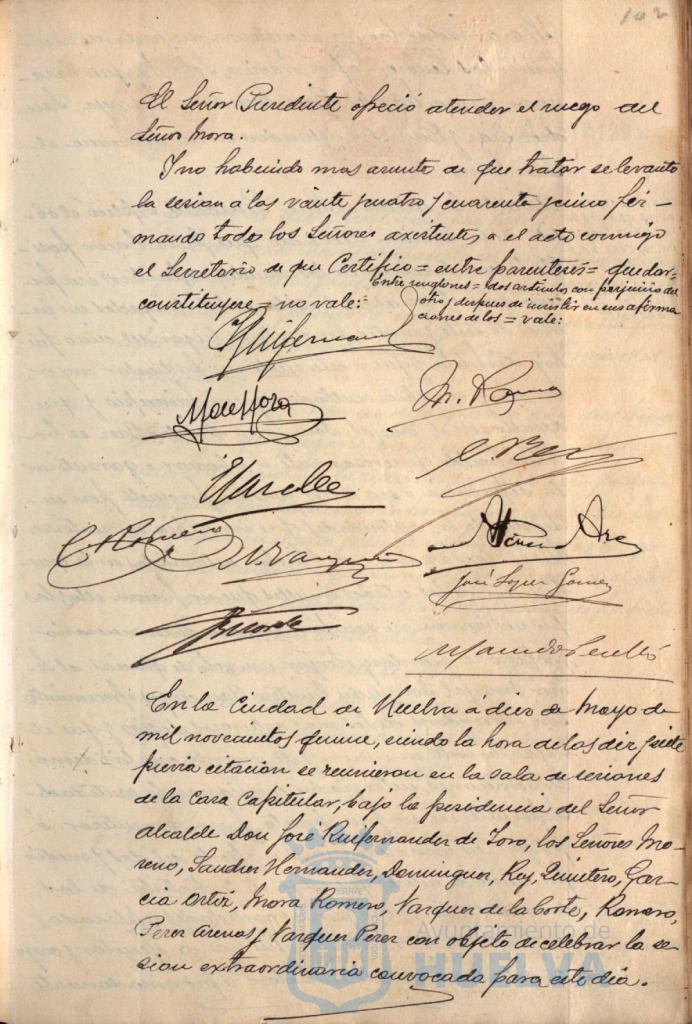 102
El Señor Presidente ofreció atender el ruego del
Señor Mora.
Y no habiendo mas asunto de que tratar se levanto
la sesion á las veinte y cuatro y cuarenta y cinco fir-
mando todos los Señores asistentes a el acto conmigo
el Secretario de que Certifico = entre parentesis = quedar =
constituyere = no vale:
Entre renglones = dos articulos con perjuicio del
otro, y despues de insistir en sus afirma
ciones de los = vale:
Ruifernandez
M. de Mora
C. Romero
José Lopez Gomez
En la ciudad de Huelva á diez de Mayo de
mil novecientos quince, siendo la hora de las diez y siete
previa citacion se reunieron en la sala de sesiones
de la Casa Capitular, bajo la presidencia del Señor
Alcalde Don José Ruifernandez de Toro, los Señores Mo-
reno, Sanchez Hernandez, Dominguez, Rey, Quintero, Gar-
cia Ortiz, Mora Romero, Vazquez de la Corte, Romero,
Perez Arenas y Vazquez Perez con objeto de celebrar la se-
sion extraordinaria convocada para este dia.
Ayuntamiento de
HUELVA